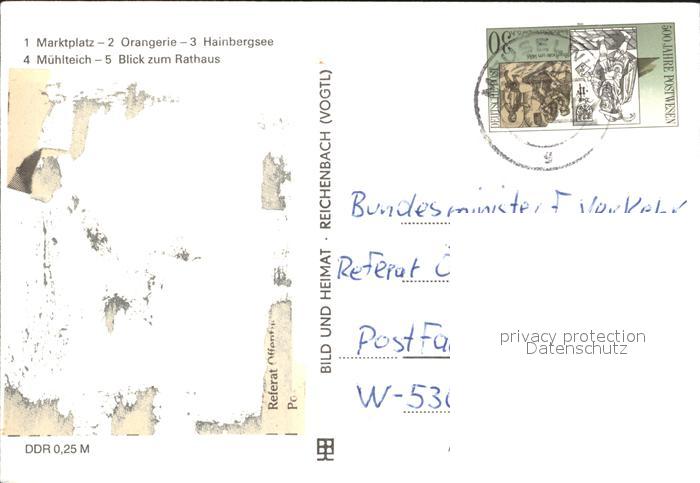 1 Marktplatz – 2 Orangerie – 3 Hainbergsee
4 Mühlteich – 5 Blick zum Rathaus
500 JAHRE POSTWESEN
30
BILD UND HEIMAT · REICHENBACH (VOGTL)
Bundesminister F Verkehr
Referat Ö
PostFa
W-530
privacy protection
Datenschutz
Referat Öffentli
Po
DDR 0,25 M